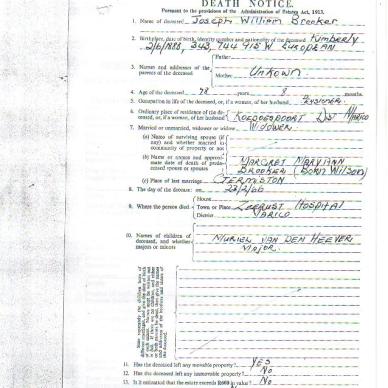 DEATH NOTICE.
Pursuant to the provisions of the Administration of Estates Act, 1913.
1. Name of deceased Joseph William Brooker
2. Birthplace, date of birth, identity number and nationality of the deceased Kimberly
2/6/1888, 343, 744 915 W European
3. Names and addresses of the parents of the deceased
Father
Mother Unkown
4. Age of the deceased 78 years 8 months.
5. Occupation in life of the deceased, or, if a woman, of her husband
6. Ordinary place of residence of the deceased, or, if a woman, of her husband Koedoespoort Dist Marico
7. Married or unmarried, widower or widow Widower
(a) Name of surviving spouse (if any) and whether married in community of property or not
(b) Name or names and approximate date of death of predeceased spouse or spouses
Margret Maryann
Brooker (Born Wilson)
(c) Place of last marriage Germiston
8. The day of the decease: on 23/2/66
9. Where the person died
House
Town or Place Zeerust Hospital
District Marico
10. Names of children of deceased, and whether majors or minors
Muriel van den Heever
Major.
11. Has the deceased left any movable property? Yes
12. Has the deceased left any immovable property? No
13. Is it estimated that the estate exceeds R600 in value? No